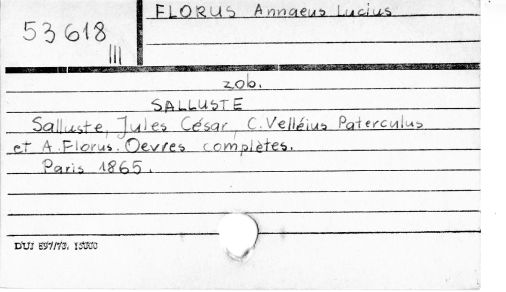 FLORUS Annaeus Lucius
53618
III
zob.
SALLUSTE
Salluste, Jules César, C. Velléius Paterculus
et A. Florus. Oevres complètes.
Paris 1865.
DUJ 897/73. 15000